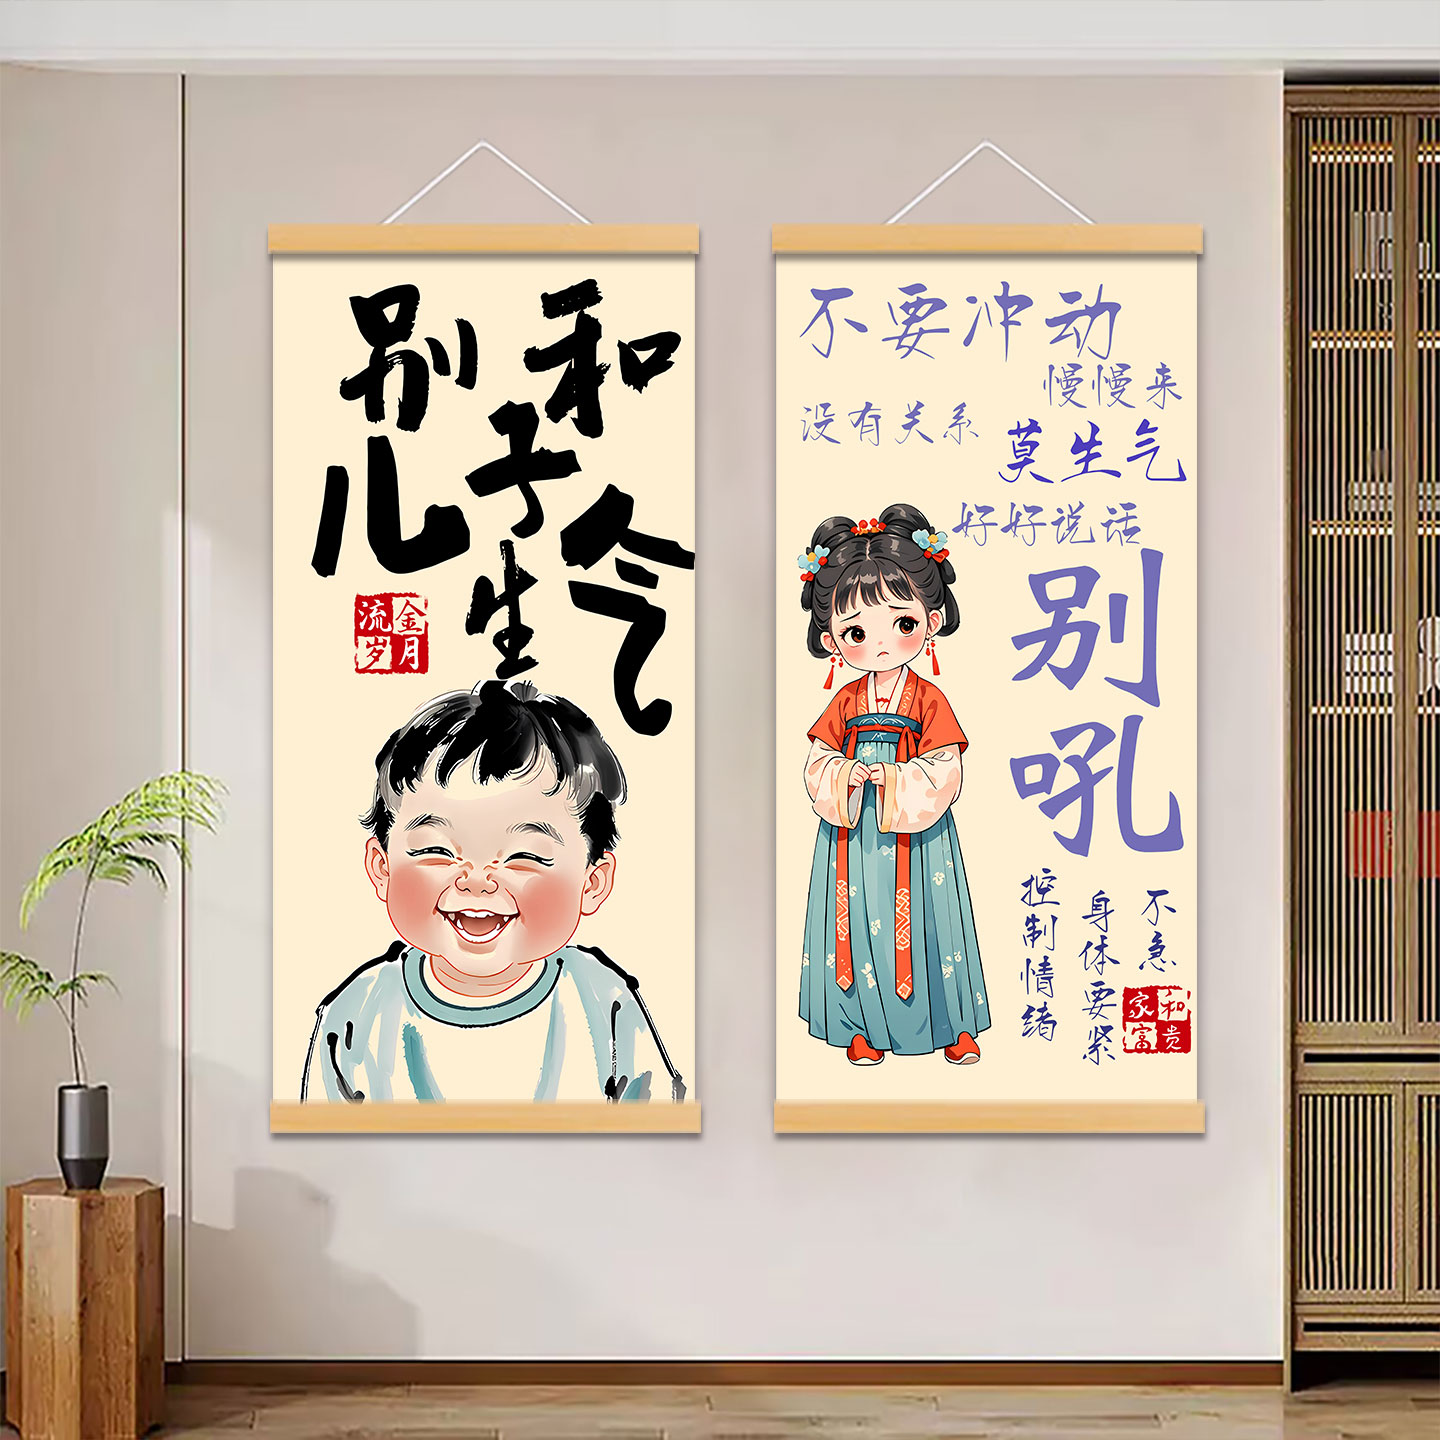 别和
儿子
生气
流金
岁月
不要冲动
慢慢来
没有关系
莫生气
好好说话
别吼
控制情绪
身体要紧
不急
家和
富贵